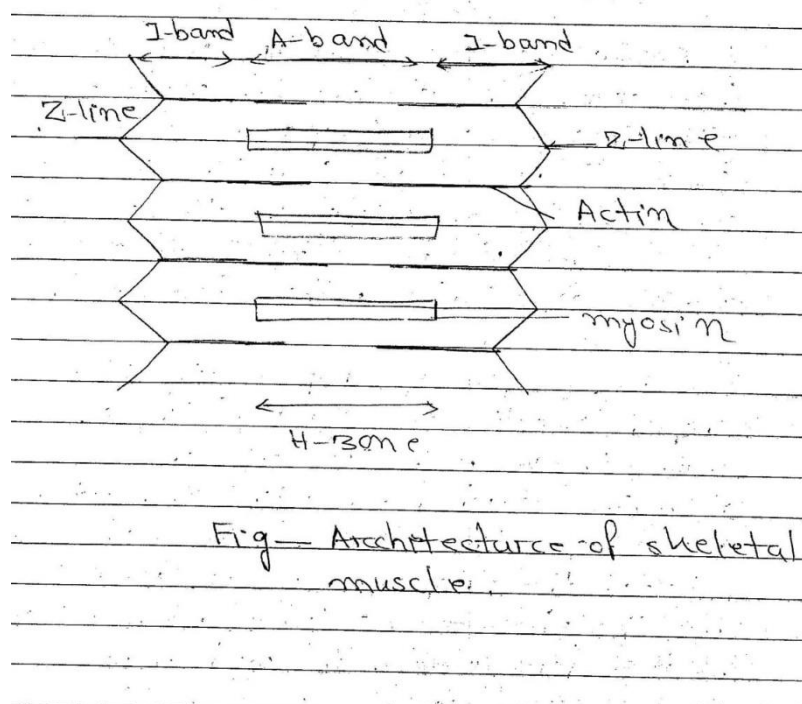 I-band A-band I-band
Z-line
Z-line
Actin
myosin
H-zone
Fig — Arcchitecturce of skeletal
muscle.